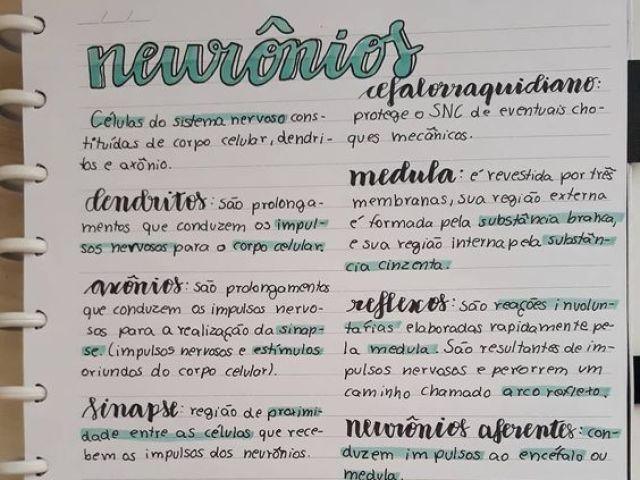 neurônios
Células do sistema nervoso cons-
tituídas de corpo celular, dendri-
tos e axônio.
dendritos: são prolonga-
mentos que conduzem os impul-
sos nervosos para o corpo celular.
axônios: são prolongamentos
que conduzem os impulsos nervo-
sos para a realização da sinap-
se. (impulsos nervosos e estímulos
oriundos do corpo celular).
sinapse: região de proximi-
dade entre as células que rece-
bem os impulsos dos neurônios.
cefalorraquidiano:
protege o SNC de eventuais cho-
ques mecânicos.
medula: é revestida por três
membranas, sua região externa
é formada pela substância branca,
e sua região interna pela substân-
cia cinzenta.
reflexos: são reações involun-
tárias elaboradas rapidamente pe-
la medula. São resultantes de im-
pulsos nervosos e percorrem um
caminho chamado arco reflexo.
neurônios aferentes: con-
duzem impulsos ao encéfalo ou
medula.